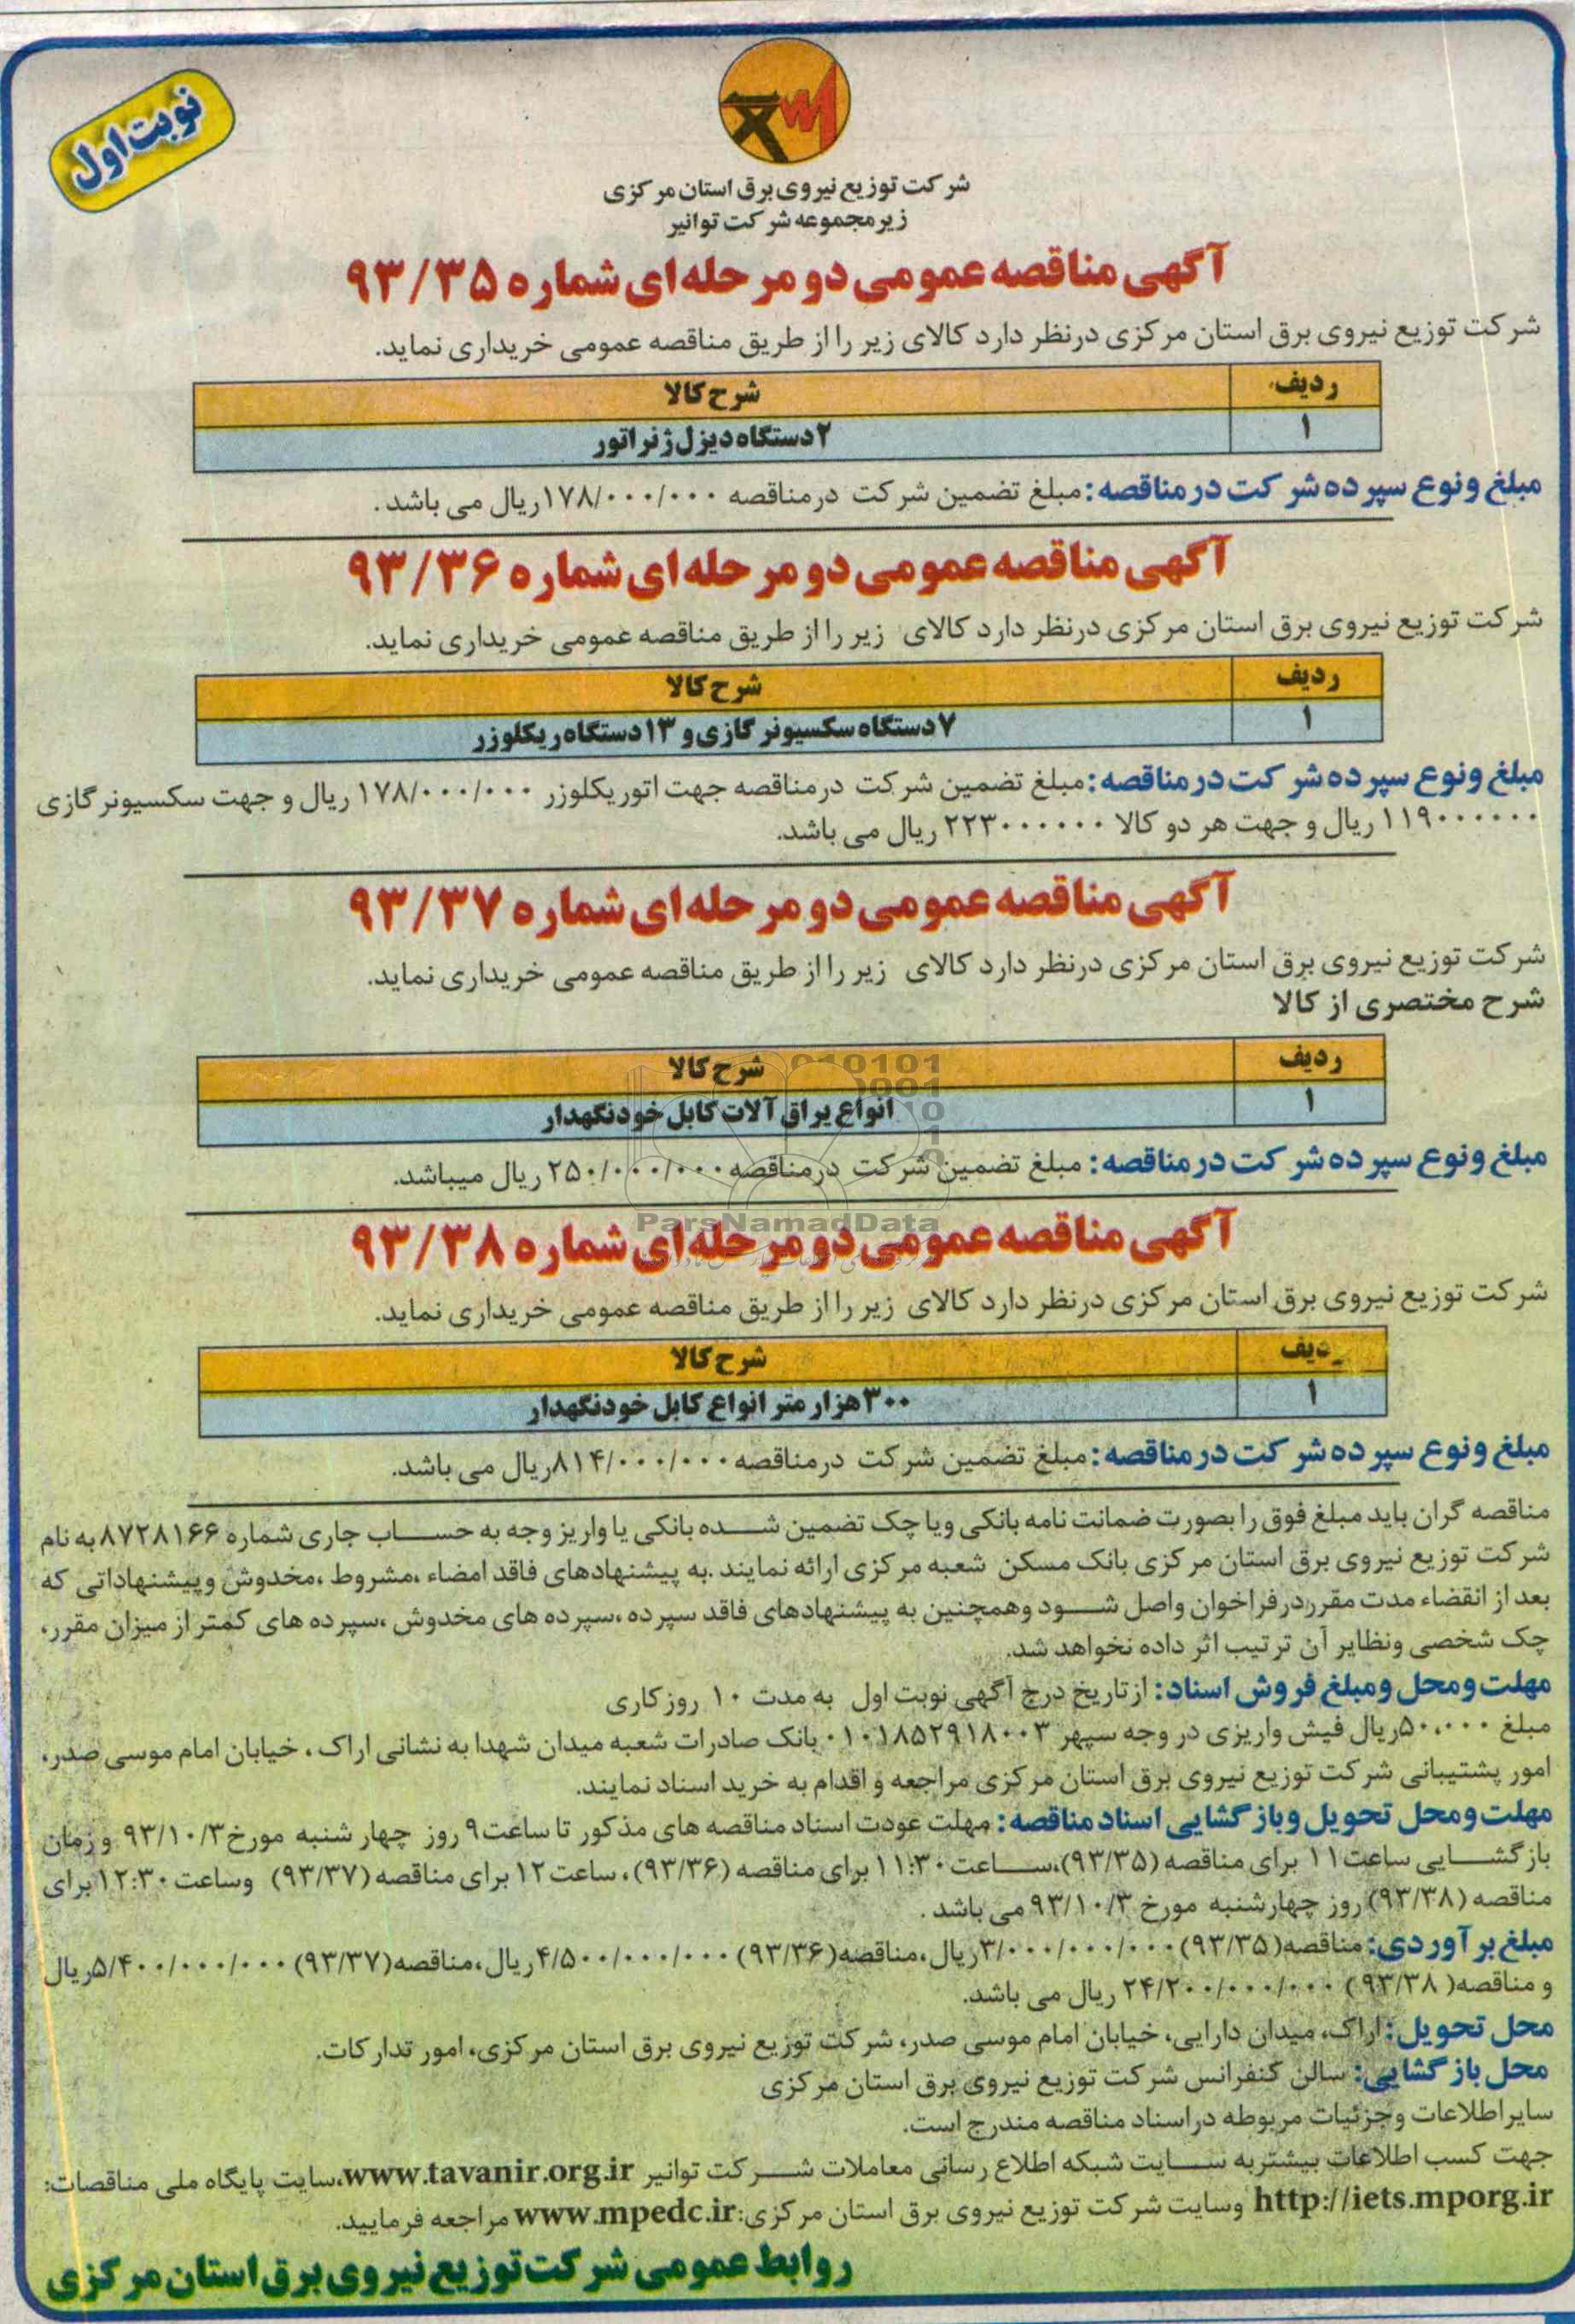 نوبت اول
شرکت توزیع نیروی برق استان مرکزی
زیرمجموعه شرکت توانیر
آگهی مناقصه عمومی دو مرحله ای شماره ۹۳/۳۵
شرکت توزیع نیروی برق استان مرکزی درنظر دارد کالای زیر را از طریق مناقصه عمومی خریداری نماید.
ردیف شرح کالا
۱ ۲ دستگاه دیزل ژنراتور
مبلغ ونوع سپرده شرکت در مناقصه: مبلغ تضمین شرکت درمناقصه ۱۷۸/۰۰۰/۰۰۰ ریال می باشد.
آگهی مناقصه عمومی دو مرحله ای شماره ۹۳/۳۶
شرکت توزیع نیروی برق استان مرکزی درنظر دارد کالای زیر را از طریق مناقصه عمومی خریداری نماید.
ردیف شرح کالا
۱ ۷ دستگاه سکسیونر گازی و ۱۳ دستگاه ریکلوزر
مبلغ ونوع سپرده شرکت در مناقصه: مبلغ تضمین شرکت درمناقصه جهت اتوریکلوزر ۱۷۸/۰۰۰/۰۰۰ ریال و جهت سکسیونر گازی
۱۱۹۰۰۰۰۰۰ ریال و جهت هر دو کالا ۲۲۳۰۰۰۰۰۰ ریال می باشد.
آگهی مناقصه عمومی دو مرحله ای شماره ۹۳/۳۷
شرکت توزیع نیروی برق استان مرکزی درنظر دارد کالای زیر را از طریق مناقصه عمومی خریداری نماید.
شرح مختصری از کالا
ردیف شرح کالا
۱ انواع یراق آلات کابل خودنگهدار
مبلغ ونوع سپرده شرکت در مناقصه: مبلغ تضمین شرکت درمناقصه ۲۵۰/۰۰۰/۰۰۰ ریال میباشد.
ParsNamadData
آگهی مناقصه عمومی دو مرحله ای شماره ۹۳/۳۸
شرکت توزیع نیروی برق استان مرکزی درنظر دارد کالای زیر را از طریق مناقصه عمومی خریداری نماید.
ردیف شرح کالا
۱ ۳۰۰ هزار متر انواع کابل خودنگهدار
مبلغ ونوع سپرده شرکت در مناقصه: مبلغ تضمین شرکت درمناقصه ۸۱۴/۰۰۰/۰۰۰ ریال می باشد.
مناقصه گران باید مبلغ فوق را بصورت ضمانت نامه بانکی ویا چک تضمین شده بانکی یا واریز وجه به حساب جاری شماره ۸۷۲۸۱۶۶ به نام
شرکت توزیع نیروی برق استان مرکزی بانک مسکن شعبه مرکزی ارائه نمایند .به پیشنهادهای فاقد امضاء ،مشروط ،مخدوش وپیشنهاداتی که
بعد از انقضاء مدت مقرردرفراخوان واصل شود وهمچنین به پیشنهادهای فاقد سپرده ،سپرده های مخدوش ،سپرده های کمتر از میزان مقرر،
چک شخصی ونظایر آن ترتیب اثر داده نخواهد شد.
مهلت ومحل ومبلغ فروش اسناد: ازتاریخ درج آگهی نوبت اول به مدت ۱۰ روزکاری
مبلغ ۵۰،۰۰۰ریال فیش واریزی در وجه سپهر ۰۱۰۱۸۵۲۹۱۸۰۰۳ بانک صادرات شعبه میدان شهدا به نشانی اراک ، خیابان امام موسی صدر،
امور پشتیبانی شرکت توزیع نیروی برق استان مرکزی مراجعه و اقدام به خرید اسناد نمایند.
مهلت ومحل تحویل وبازگشایی اسناد مناقصه: مهلت عودت اسناد مناقصه های مذکور تا ساعت۹ روز چهار شنبه مورخ ۹۳/۱۰/۳ و زمان
بازگشایی ساعت ۱۱ برای مناقصه (۹۳/۳۵)،ساعت ۱۱:۳۰ برای مناقصه (۹۳/۳۶)، ساعت ۱۲ برای مناقصه (۹۳/۳۷) وساعت ۱۲:۳۰ برای
مناقصه (۹۳/۳۸) روز چهارشنبه مورخ ۹۳/۱۰/۳ می باشد .
مبلغ برآوردی: مناقصه(۹۳/۳۵) ۳/۰۰۰/۰۰۰/۰۰۰ریال،مناقصه(۹۳/۳۶) ۴/۵۰۰/۰۰۰/۰۰۰ ریال،مناقصه(۹۳/۳۷) ۵/۴۰۰/۰۰۰/۰۰۰ریال
و مناقصه( ۹۳/۳۸) ۲۴/۲۰۰/۰۰۰/۰۰۰ ریال می باشد.
محل تحویل: اراک، میدان دارایی، خیابان امام موسی صدر، شرکت توزیع نیروی برق استان مرکزی، امور تدارکات.
محل بازگشایی: سالن کنفرانس شرکت توزیع نیروی برق استان مرکزی
سایراطلاعات وجزئیات مربوطه دراسناد مناقصه مندرج است.
جهت کسب اطلاعات بیشتربه سایت شبکه اطلاع رسانی معاملات شرکت توانیر www.tavanir.org.ir،سایت پایگاه ملی مناقصات:
http://iets.mporg.ir وسایت شرکت توزیع نیروی برق استان مرکزی:www.mpedc.ir مراجعه فرمایید.
روابط عمومی شرکت توزیع نیروی برق استان مرکزی